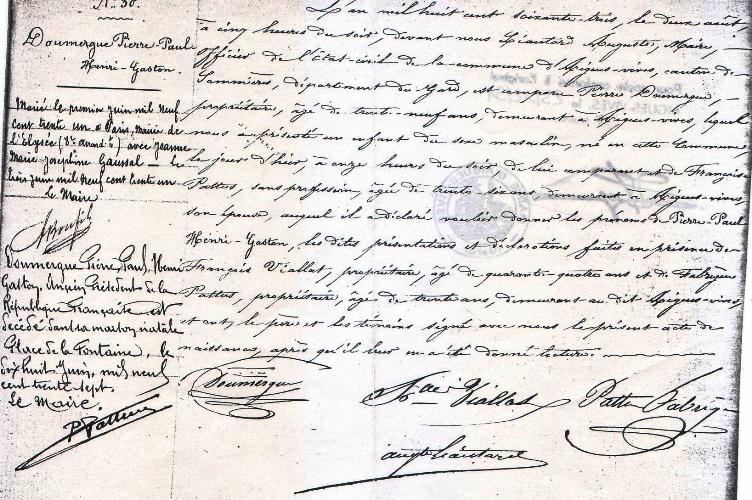 N.° 30.
Doumergue Pierre-Paul-
Henri-Gaston.
Marié le premier juin mil neuf
cent trente un à Paris, Mairie de
l'Elysée (8e arrond t) avec Jeanne
Marie Joséphine Gaussal — le
trois juin mil neuf cent trente un
Le Maire
Doumergue Pierre Paul, Henri
Gaston, Ancien Président de la
République Française est
décédé dans sa maison natale
Place de la Fontaine, le
dix huit Juin, mil neuf
cent trente sept.
Le Maire.
L'an mil huit cent soixante-trois, le deux août,
à cinq heures du soir, devant nous Léautard Auguste, Maire,
Officier de l'Etat-civil de la commune d'Aigues-vives, canton de
Sommières, département du Gard, est comparu Pierre Doumergue,
propriétaire, âgé de trente-neuf ans, demeurant à Aigues-vives, lequel
nous a présenté un enfant du sexe masculin, né en cette Commune,
le jour d'hier, à onze heures du soir, de lui comparant et de Françoise
Pattus, sans profession, âgée de trente six ans, demeurant à Aigues-vives,
son épouse, auquel il a déclaré vouloir donner les prénoms de Pierre-Paul
Henri-Gaston, les dites présentations et déclarations faites en présence de
François Viallat, propriétaire, âgé de quarante-quatre ans et de Fabrigue
Pattus, propriétaire, âgé de trente ans, demeurant au dit Aigues-vives,
et ont, le père et les témoins signé avec nous le présent acte de
naissance, après qu'il leur en a été donné lecture.
Doumergue Viallat Pattus Fabrig
Augte Léautard